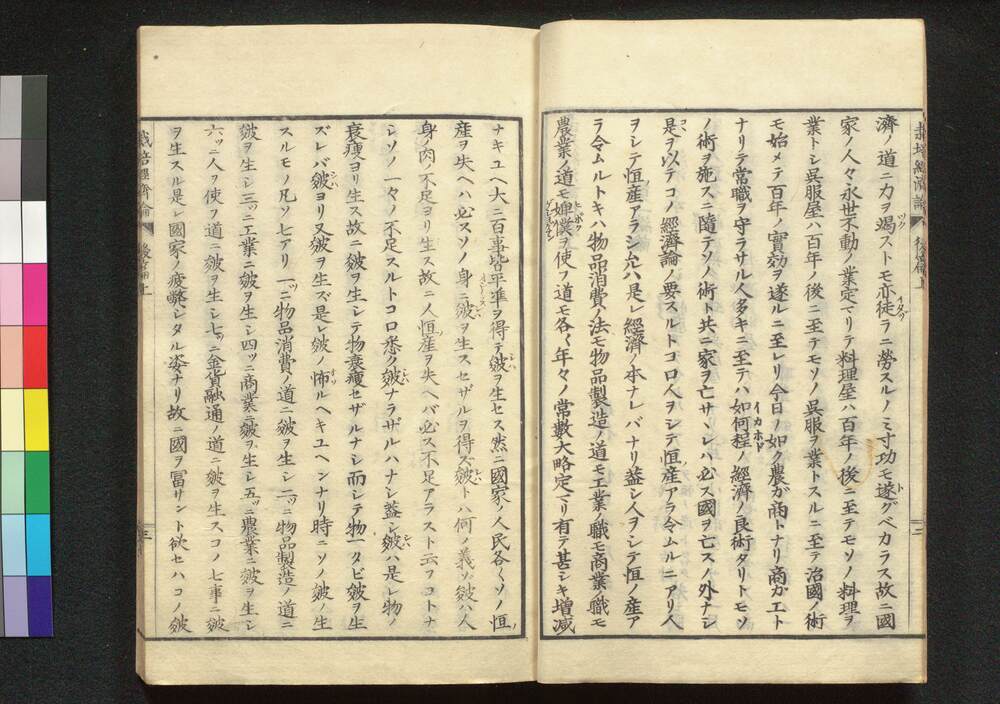 濟ノ道ニ力ヲ竭ストモ亦徒ラニ勞スルノミ寸功モ遂グベカラス故ニ國
家ノ人々永世不動ノ業定マリテ料理屋ハ百年ノ後ニ至テモソノ料理ヲ
業トシ呉服屋ハ百年ノ後ニ至テモソノ呉服ヲ業トスルニ至テ治國ノ術
モ始メテ百年ノ實効ヲ遂ルニ至レリ今日ノ如ク農ガ商トナリ商ガ工ト
ナリテ常職ヲ守ラサル人多キニ至テハ如何程ノ經濟ノ良術タリトモソ
ノ術ヲ施スニ隨テソノ術ト共ニ家ヲ亡サヽレハ必ス國ヲ亡スノ外ナシ
是ヲ以テコノ經濟論ノ要スルトコロ人ヲシテ恒産アラ令ムルニアリ人
ヲシテ恒産アラシ允ハ是レ經濟ノ本ナレバナリ蓋シ人ヲシテ恒ノ産ア
ラ令ムルトキハ物品消費ノ法モ物品製造ノ道モ工業ノ職モ商業ノ職モ
農業ノ道モ婢僕ヲ使フ道モ各〱年々ノ常數大略定マリ有テ甚シキ増減
栽培經濟論
後篇上
二
ナキユヘ大ニ百事皆平準ヲ得テ皴ヲ生セス然ニ國家ノ人民各〱ソノ恒ノ
産ヲ失ヘハ必スソノ身ニ皴ヲ生スセザルヲ得ズ皴トハ何ノ義ソ皴ハ人
身ノ肉ノ不足ヨリ生ス故ニ人恒産ヲ失ヘバ必ス不足アラスト云フコトナ
シソノ一々ノ不足スルトコロ悉ク皴ナラザルハナシ蓋シ皴ハ是レ物ノ
衰瘦ヨリ生ス故ニ皴ヲ生シテ物衰瘦セザルナシ而シテ物一タビ皴ヲ生
ズレバ皴ヨリ又皴ヲ生ズ是レ皴ノ怖ルヘキユヘンナリ時ニソノ皴ノ生
スルモノ凡ソ七アリ一ッニ物品消費ノ道ニ皴ヲ生シ二ッニ物品製造ノ道ニ
皴ヲ生シ三ッニ工業ニ皴ヲ生シ四ッニ商業ニ皴ヲ生シ五ッニ農業ニ皴ヲ生シ
六ッニ人ヲ使フ道ニ皴ヲ生シ七ッニ金貨融通ノ道ニ皴ヲ生スコノ七事ニ皴
ヲ生スル是レ國家ノ疲弊シタル姿ナリ故ニ國ヲ冨サント欲セハコノ皴
栽培經濟論
後篇上
三